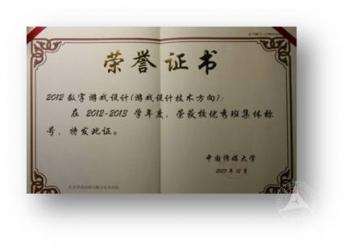 荣誉证书
2012数字游戏设计(游戏设计技术方向):
在2012-2013学年度,荣获校优秀班集体称
号,特发此证。
中国传媒大学